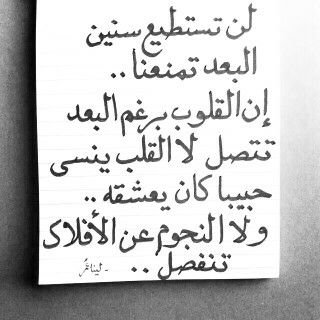 لن تستطيع سنين
البعد تمنعنا ..
إن القلوب برغم البعد
تتصل لا القلب ينسى
حبيبا كان يعشقه ..
ولا النجوم عن الأفلاك
تنفصل ..